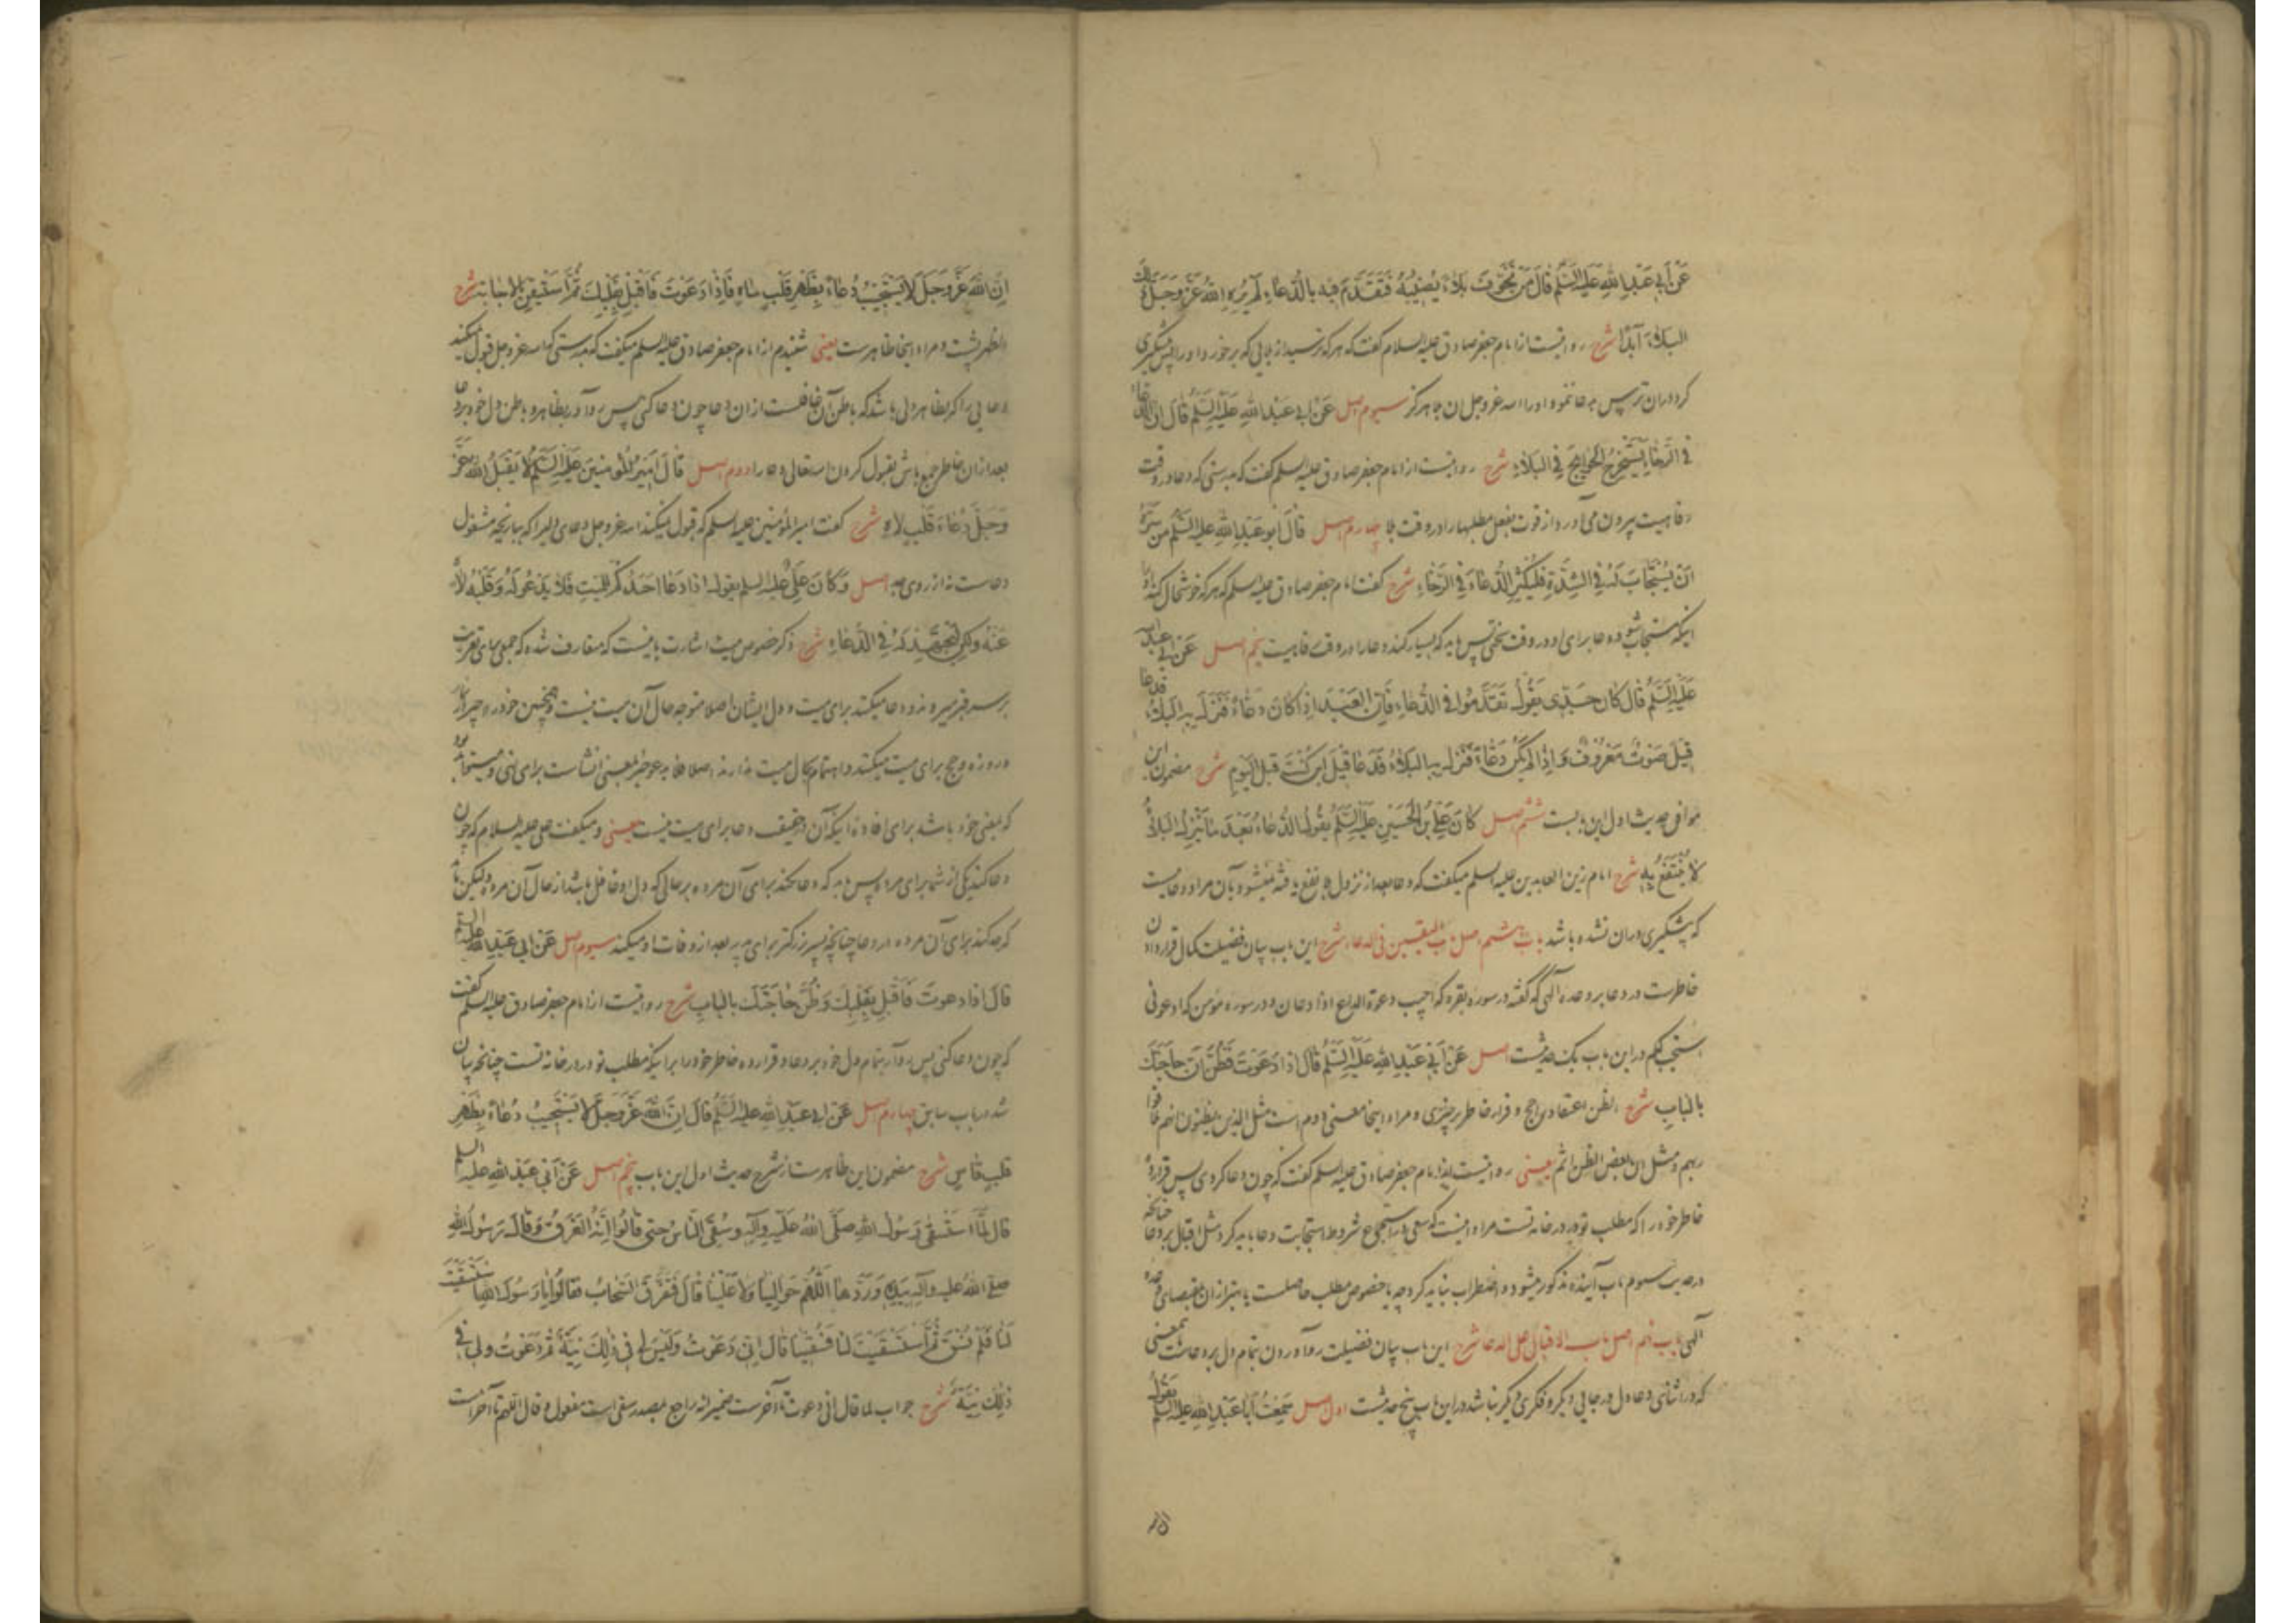 عَنْ أَبِي عَبْدِ اللهِ عَلَيْهِ السَّلَمُ قَالَ مَنْ تَخَوَّفَ بَلَاءً يُصِيبُهُ فَتَقَدَّمَ فِيهِ بِالدُّعَاءِ لَمْ يُرِهِ اللهُ عَزَّ وَجَلَّ ذَلِكَ
الْبَلَاءَ أَبَدًا شرح روایتست از امام جعفر صادق علیه السلام گفت که هر که ترسید از بلائی که برخورد او را پس پیشگیری
کرد در آن ترس به دعا ننمود او را الله عز وجل آن بلا هرگز سیوم اصل عَنْ أَبِي عَبْدِ اللهِ عَلَيْهِ السَّلَمُ قَالَ إِنَّ الدُّعَاءَ
فِي الرَّخَاءِ يَسْتَخْرِجُ الْحَوَائِجَ فِي الْبَلَاءِ شرح روایتست از امام جعفر صادق علیه السلم گفت که بدرستی که دعا در وقت
رفاهیت بیرون می آورد از قوت بفعل مطلبها را در وقت بلا چهارم اصل قَالَ أَبُو عَبْدِ اللهِ عَلَيْهِ السَّلَمُ مَنْ سَرَّهُ
أَنْ يُسْتَجَابَ لَهُ فِي الشِّدَّةِ فَلْيُكْثِرِ الدُّعَاءَ فِي الرَّخَاءِ شرح گفت امام جعفر صادق علیه السلم که هر که خوشحال کند او را
اینکه مستجاب شود دعا برای او در وقت سختی پس باید که بسیار کند دعا را در وقت رفاهیت پنجم اصل عَنْ أَبِي عَبْدِ اللهِ
عَلَيْهِ السَّلَمُ قَالَ كَانَ جَدِّي يَقُولُ تَقَدَّمُوا فِي الدُّعَاءِ فَإِنَّ الْعَبْدَ إِذَا كَانَ دَعَّاءً فَنَزَلَ بِهِ الْبَلَاءُ فَدَعَا
قِيلَ صَوْتٌ مَعْرُوفٌ وَإِذَا لَمْ يَكُنْ دَعَّاءً فَنَزَلَ بِهِ الْبَلَاءُ فَدَعَا قِيلَ أَيْنَ كُنْتَ قَبْلَ الْيَوْمِ شرح مضمون این
موافق حدیث اول این بابست ششم اصل كَانَ عَلِيُّ بْنُ الْحُسَيْنِ عَلَيْهِ السَّلَمُ يَقُولُ الدُّعَاءُ بَعْدَ مَا يَنْزِلُ الْبَلَاءُ
لَا يُنْتَفَعُ بِهِ شرح امام زین العابدین علیه السلم میگفت که دعا بعد از نزول بلا نفع یافته نمیشود بآن مراد دعائیست
که پیشگیری در آن نشده باشد باب هشتم اصل باب الیقین فی الدعاء شرح این باب بیان فضیلت کمال قرار دادن
خاطرست در دعا بر وعده الهی که گفته در سوره بقره که اجیب دعوة الداع اذا دعان و در سوره مؤمن که ادعونی
استجب لکم در این باب یک حدیثست اصل عَنْ أَبِي عَبْدِ اللهِ عَلَيْهِ السَّلَمُ قَالَ إِذَا دَعَوْتَ فَظُنَّ أَنَّ حَاجَتَكَ
بِالْبَابِ شرح الظن اعتقاد راجح و قرار خاطر بر چیزی و مراد اینجا معنی دوم است مثل الذین یظنون انهم ملاقوا
ربهم و مثل ان بعض الظن اثم یعنی روایتست از امام جعفر صادق علیه السلم گفت که چون دعا کردی پس قرار ده
خاطر خود را که مطلب تو بر در خانه تست مراد اینست که سعی در استجماع شروط استجابت دعا باید کرد مثل اقبال بر دعا چنانچه
در حدیث سیوم باب آینده مذکور میشود و اضطراب نباید کرد چه یا خصوص مطلب حاصلست یا بهتر از آن بمقتضای وعده
الهی باب نهم اصل باب الاقبال علی الدعاء شرح این باب بیان فضیلت رو آوردن بتمام دل بر دعاست بمعنی
که در اثنای دعا دل در جائی دیگر و فکری دیگر نباشد در این باب پنج حدیثست اول اصل سَمِعْتُ أَبَا عَبْدِ اللهِ عَلَيْهِ السَّلَمُ يَقُولُ
إِنَّ اللهَ عَزَّ وَجَلَّ لَا يَسْتَجِيبُ دُعَاءً بِظَهْرِ قَلْبٍ سَاهٍ فَإِذَا دَعَوْتَ فَأَقْبِلْ بِقَلْبِكَ ثُمَّ اسْتَيْقِنْ بِالْإِجَابَةِ شرح
الظهر پشت و مراد اینجا ظاهرست یعنی شنیدم از امام جعفر صادق علیه السلم میگفت که بدرستی که الله عز وجل قبول نمیکند
دعائی را که بظاهر دلی باشد که باطن آن غافلست از آن دعا چون دعا کنی پس رو آور بظاهر و باطن دل خود بر دعا
بعد از آن خاطر جمع باش بقبول کردن الله تعالی دعا را دوم اصل قَالَ أَمِيرُ الْمُؤْمِنِينَ عَلَيْهِ السَّلَمُ لَا يَقْبَلُ اللهُ عَزَّ
وَجَلَّ دُعَاءَ قَلْبٍ لَاهٍ شرح گفت امیر المؤمنین علیه السلم که قبول نمیکند الله عز وجل دعای دلی را که ببازیچه مشغول
دعاست نه از روی جد اصل وَكَانَ عَلِيٌّ عَلَيْهِ السلم يقول إِذَا دَعَا أَحَدُكُمْ لِلْمَيِّتِ فَلَا يَدْعُو لَهُ وَقَلْبُهُ لَاهٍ
عَنْهُ وَلَكِنْ لِيَجْتَهِدْ لَهُ فِي الدُّعَاءِ شرح ذکر خصوص میت اشارت باینست که متعارف شده که جمعی برای تعزیت
بر سر قبر میروند و دعا میکنند برای میت و دل ایشان اصلا متوجه حال آن میت نیست و همچنین خود را اجیر نماز
و روزه و حج برای میت میکنند و اهتمام بحال میت ندارند اصلا
که بمعنی خود باشد برای افاده اینکه آن در حقیقت دعا برای میت نیست یعنی و میگفت علی علیه السلام که چون
دعا کند یکی از شما برای مرده پس باید که دعا نکند برای آن مرده بر حالی که دل او غافل باشد از حال آن مرده و لیکن باید
که جد کند برای آن مرده در دعا چنانچه پسر بزرگتر برای پدر بعد از وفات او میکند سیوم اصل عَنْ أَبِي عَبْدِ اللهِ عليه السلم
قَالَ إِذَا دَعَوْتَ فَأَقْبِلْ بِقَلْبِكَ وَظُنَّ حَاجَتَكَ بِالْبَابِ شرح روایتست از امام جعفر صادق علیه السلم گفت
که چون دعا کنی پس رو آر بتمام دل خود بر دعا و قرار ده خاطر خود را بر اینکه مطلب تو در در خانه تست چنانچه بیان
شد در باب سابق چهارم اصل عَنْ أَبِي عَبْدِ اللهِ عَلَيْهِ السَّلَمُ قَالَ إِنَّ اللهَ عَزَّ وَجَلَّ لَا يَسْتَجِيبُ دُعَاءً بِظَهْرِ
قَلْبٍ قَاسٍ شرح مضمون این ظاهرست از شرح حدیث اول این باب پنجم اصل عَنْ أَبِي عَبْدِ اللهِ عليه السلم
قَالَ لَمَّا اسْتَسْقَى رَسُولُ اللهِ صَلَّى اللهُ عَلَيْهِ وَآلِهِ وَسُقِيَ النَّاسُ حَتَّى قَالُوا إِنَّهُ الْغَرَقُ وَقَالَ رَسُولُ اللهِ
صلى اللهُ عليه وآله بِيَدِهِ وَرَدَّهَا اللَّهُمَّ حَوَالَيْنَا وَلَا عَلَيْنَا قَالَ فَتَفَرَّقَ السَّحَابُ فَقَالُوا يَا رَسُولَ اللهِ اسْتَسْقَيْتَ
لَنَا فَلَمْ نُسْقَ ثُمَّ اسْتَسْقَيْتَ لَنَا فَسُقِينَا قَالَ إِنِّي دَعَوْتُ وَلَيْسَ لِي فِي ذَلِكَ نِيَّةٌ ثُمَّ دَعَوْتُ وَلِي فِي
ذَلِكَ نِيَّةٌ شرح جواب لما قال انی دعوت تا آخرست ضمیر انه راجع بمصدر سقی است مفعول و قال اللهم تا آخرست